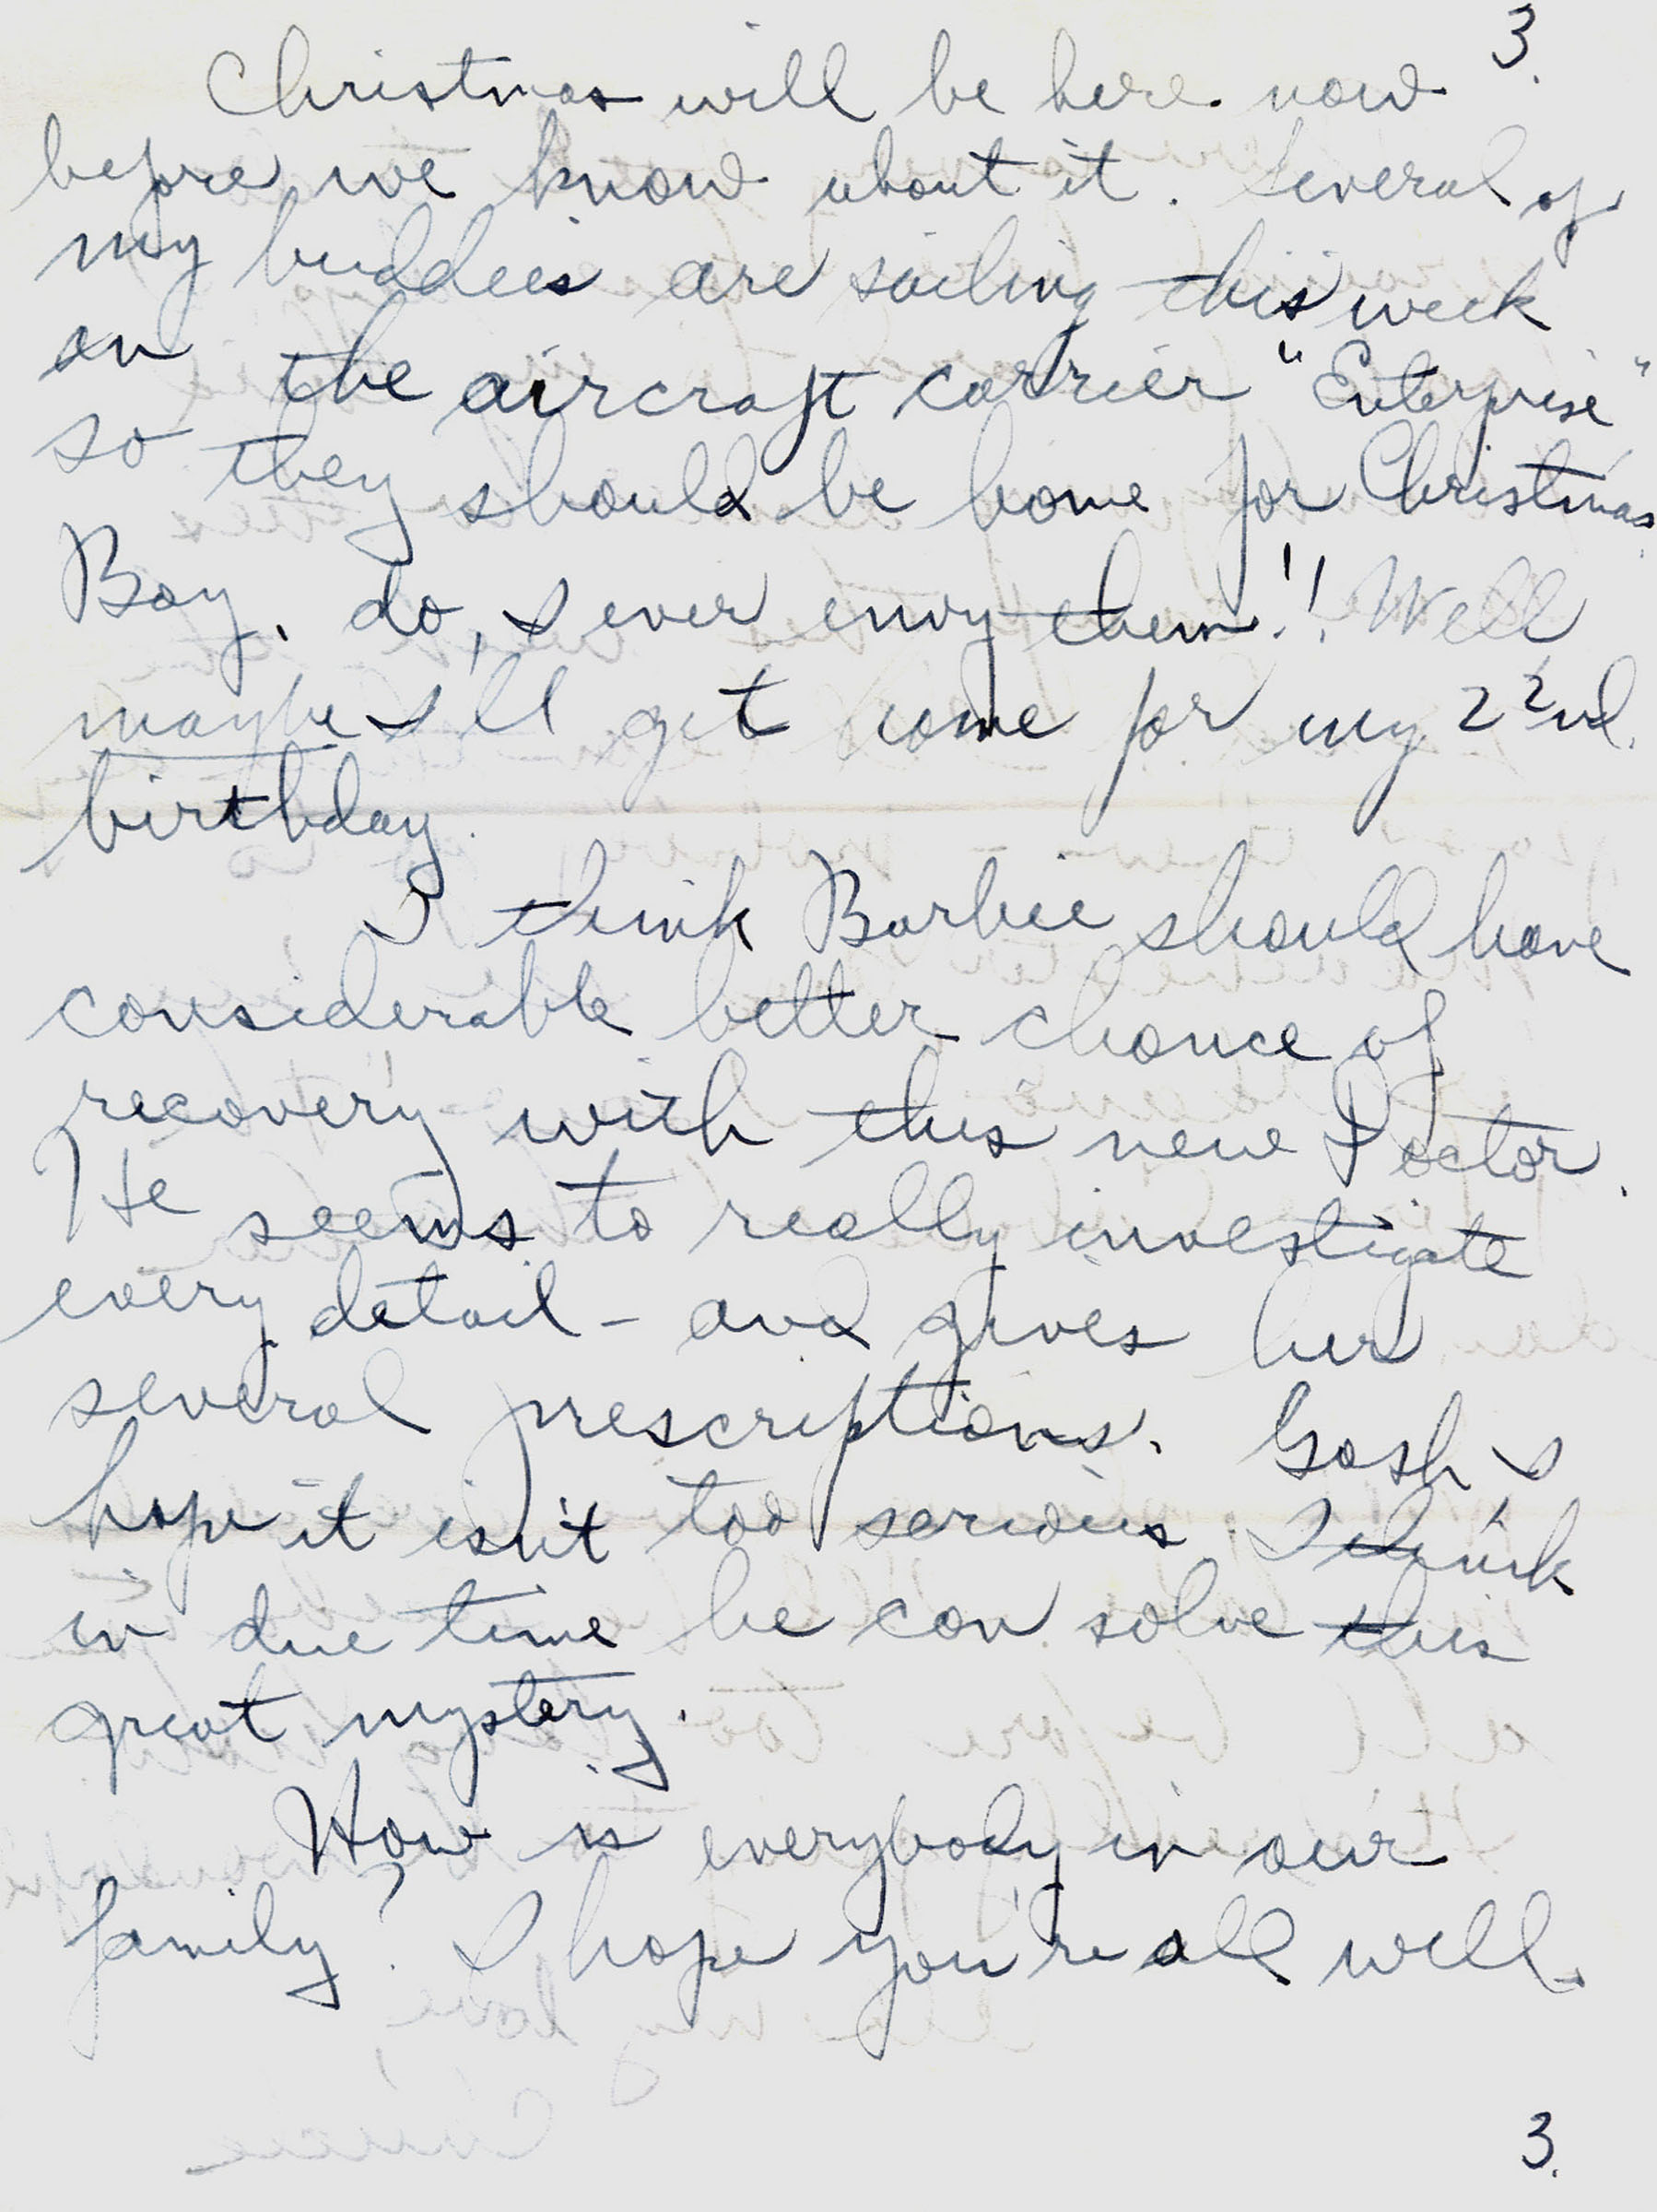 3.
Christmas will be here now
before we know about it. Several of
my buddies are sailing this week
on the aircraft carrier "Enterprise"
so they should be home for Christmas.
Boy, do, I ever envy them!! Well
maybe I'll get home for my 22nd.
birthday.
I think Barbie should have
considerable better chance of
recovery with this new Doctor.
He seems to really investigate
every detail - and gives her
several prescriptions. Gosh I
hope it isn't too serious. I think
in due time he can solve this
great mystery.
How is everybody in our
family? I hope you're all well.
3.